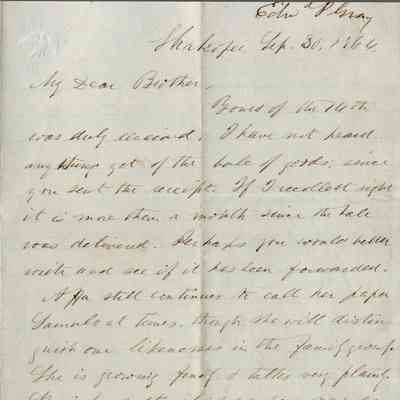 Shakopee Sep. 30, 1864.
My Dear Brother,
Yours of the 14th
was duly received. I have not heard
any thing yet of the bale of goods, since
you sent the receipt. If I recollect right
it is more than a month since the bale
was delivered. Perhaps you would better
write and see if it has been forwarded.
still continues to call her papa
Samuel at times, though she will distin
guish our likenesses in the family group.
She is growing & talks very plain.